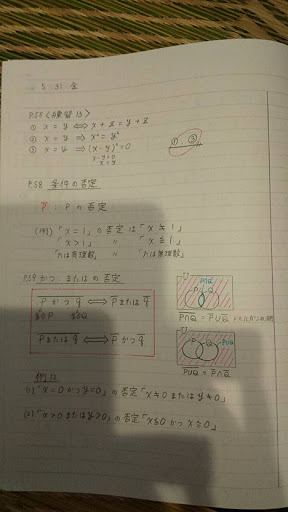 5.31.金
P.58〈練習13〉
① x = y ⟺ x + z = y + z
② x = y ⟹ x² = y²
③ x = y ⟹ (x-y)² = 0
x-y=0
x=y
① ③
P.58 条件の否定
p̄ : pの否定
(例)「x = 1」の否定は「x ≠ 1」
「x > 1」 〃 「x ≦ 1」
「nは有理数」 〃 「nは無理数」
P.59 かつ、またはの否定
p かつ q ⟺ p̄ または q̄
集合P 集合Q
p または q ⟺ p̄ かつ q̄
P∩Q
P Q
P∩Q = P̄∪Q̄
U
P Q
P∪Q
P∪Q = P̄∩Q̄
例12
(1)「x = 0 かつ y = 0」の否定「x ≠ 0 または y ≠ 0」
(2)「x > 0 または y > 0」の否定「x ≦ 0 かつ y ≦ 0」